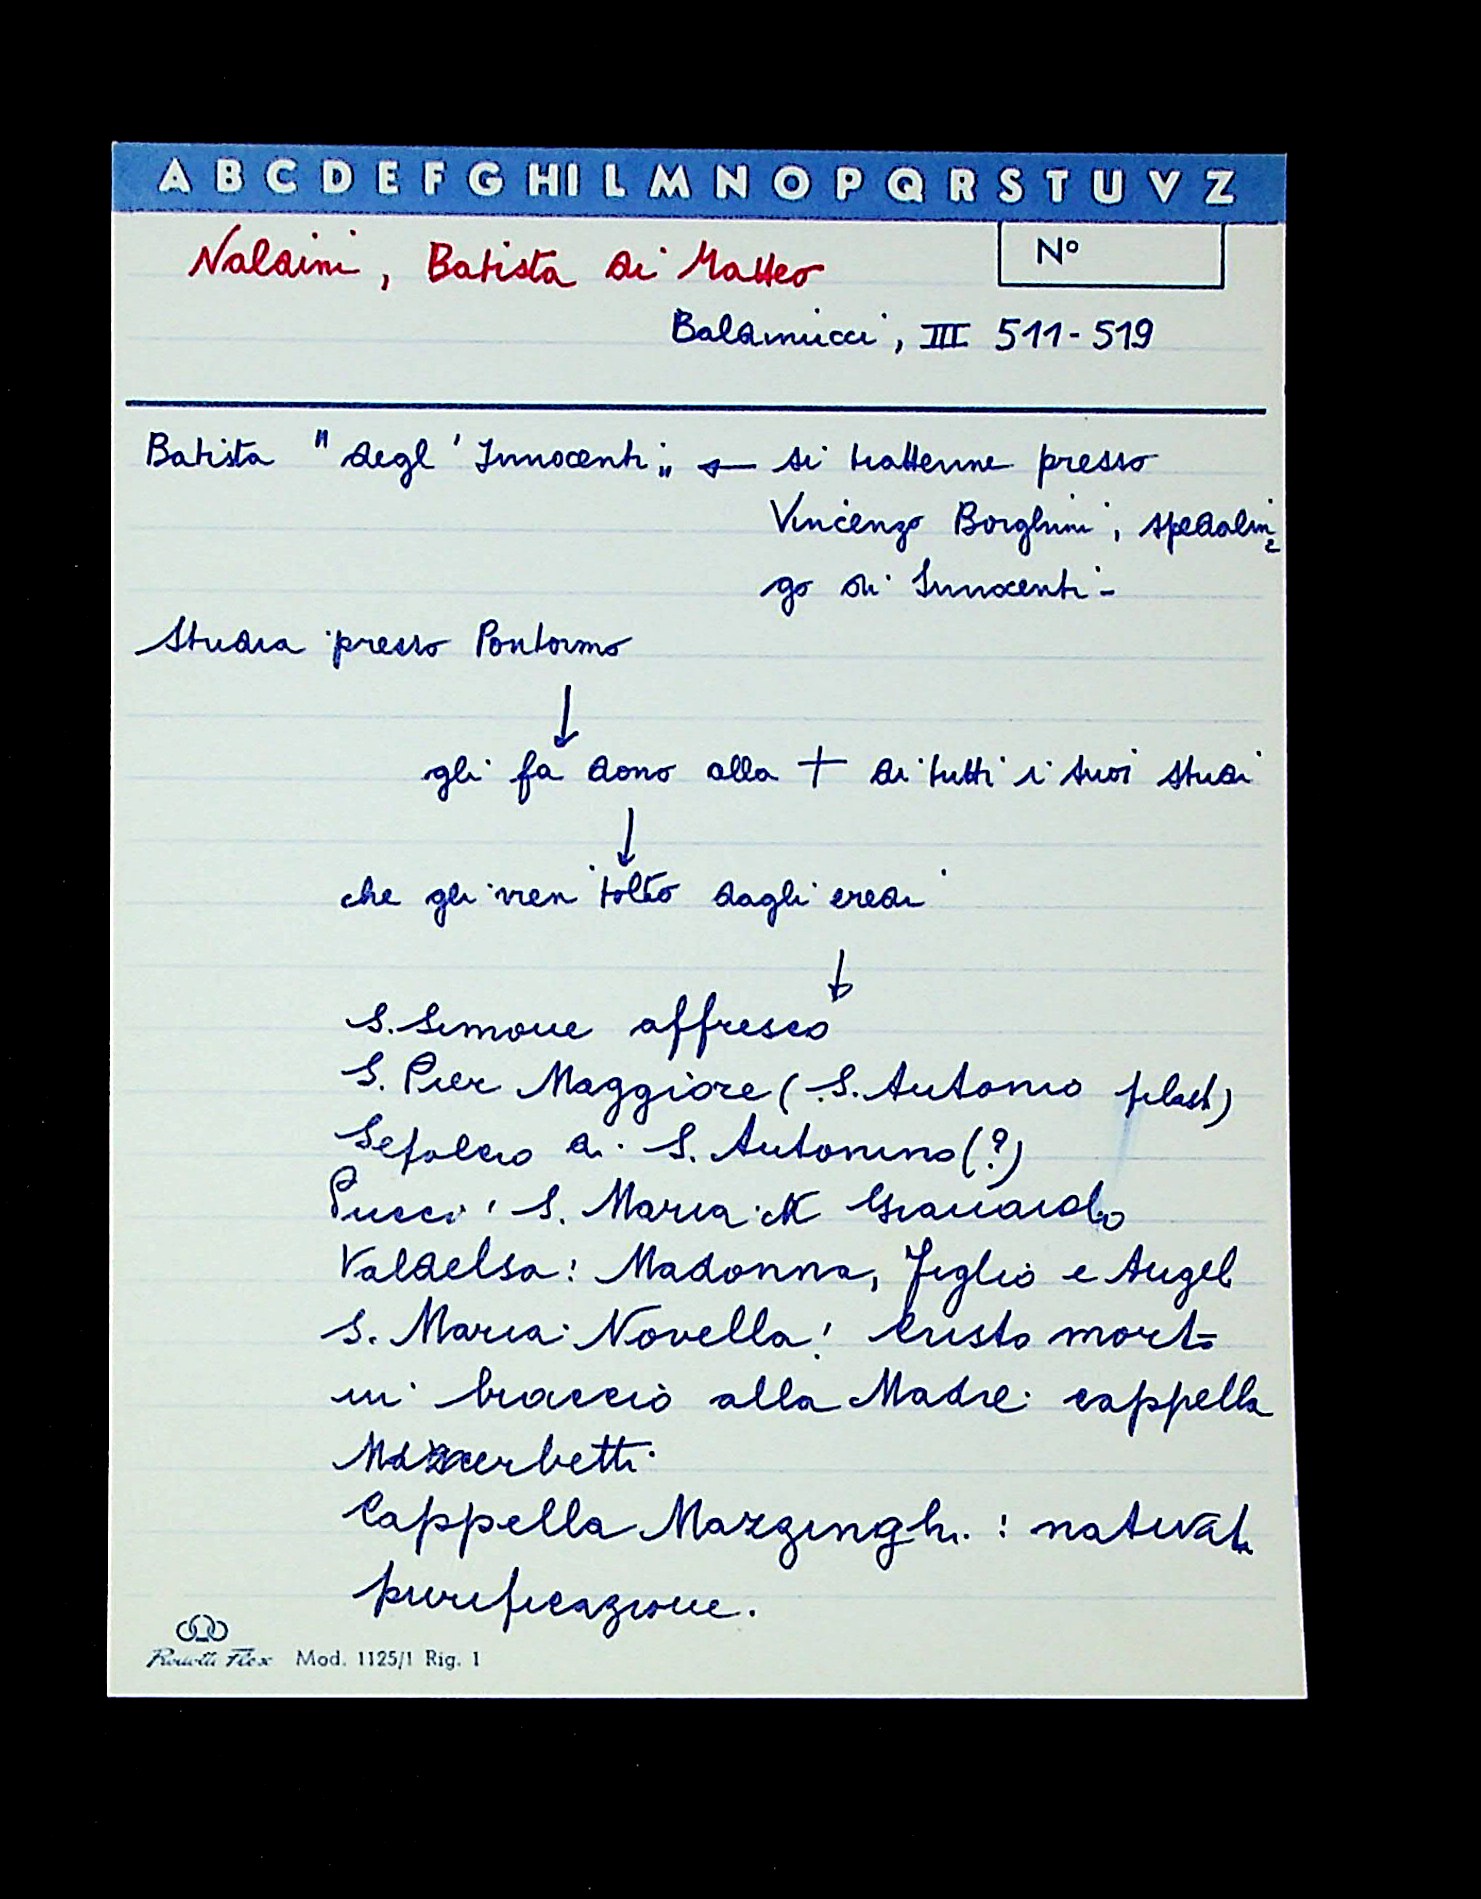 A B C D E F G H I L M N O P Q R S T U V Z
Naldini, Batista di Matteo
N°
Baldinucci, III 511-519
Batista "degl'Innocenti" ← si trattenne presso
Vincenzo Borghini, spedalin=
go di Innocenti-
Studia presso Pontormo
↓
gli fa dono alla + di tutti i suoi studi
↓
che gli vien tolto dagli eredi
↓
S. Simone affresco
S. Pier Maggiore (S. Antonio
Sepolcro di S. Antonino (?)
Pucci: S. Maria
Valdelsa: Madonna, Figlio e Angeli
S. Maria Novella: Cristo morto
in braccio alla Madre: cappella
Mazzerbetti
Cappella Mazzinghi: natività
purificazione.
Mod. 1125/1 Rig. 1